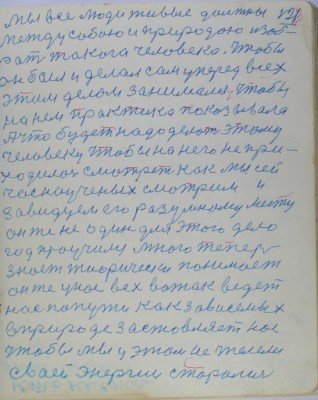 мы все люди живые должны 121
между собою и природою изоб-
рат такога человека. Чтобы
он бал и делал сам уперед всех
этим делом занимался, чтобы
на нем практика показывала
А что будет надо делат этому
человеку чтобы на него не при-
ходилос смотрет как мы сей
час на ученых смотрим и
завидуем его разумному месту
он же не один для этого дело
год проучили много тепер
знает теорически понимает
он же у нас вех вожак ведет
нас по пути как зависемых
в природе заставляет нас
чтобы мы у этом не жилели
сваей энергии старалис